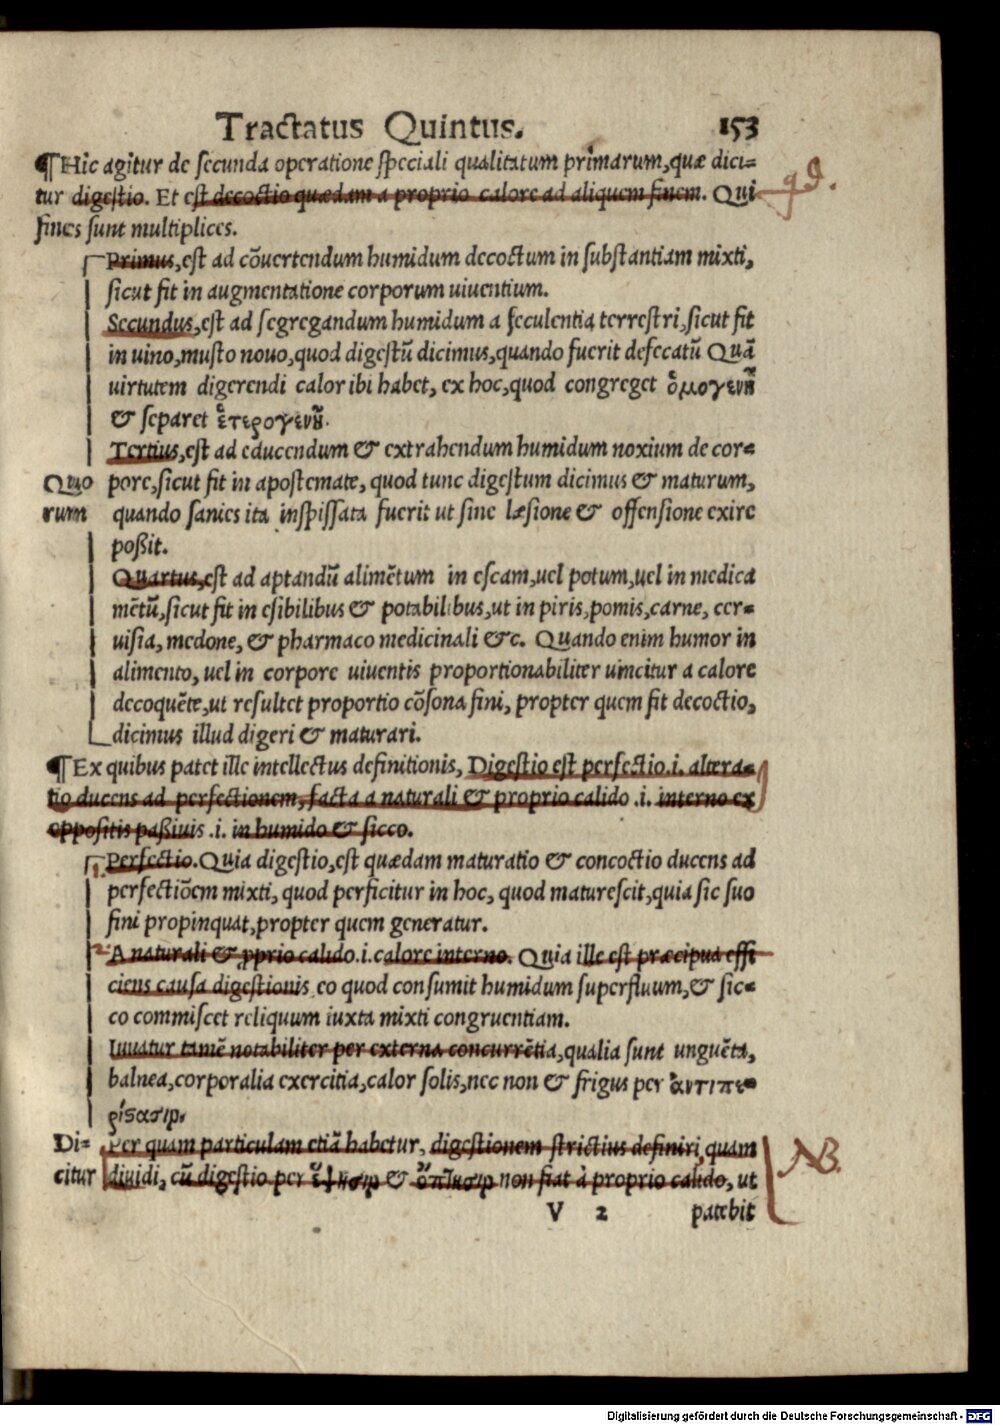 Tractatus Quintus. 153
¶Hic agitur de secunda operatione speciali qualitatum primarum, quæ dici=
tur digestio. Et est decoctio quædam a proprio calore ad aliquem finem. Qui
fines sunt multiplices.
Primus, est ad cõuertendum humidum decoctum in substantiam mixti,
sicut fit in augmentatione corporum uiuentium.
Secundus, est ad segregandum humidum a feculentia terrestri, sicut fit
in uino, musto nouo, quod digestũ dicimus, quando fuerit defecatũ Quã
uirtutem digerendi calor ibi habet, ex hoc, quod congreget ὁμογενῆ
& separet ἑτερογενῆ.
Tertius, est ad educendum & extrahendum humidum noxium de cor=
Quo pore, sicut fit in apostemate, quod tunc digestum dicimus & maturum,
rum quando sanies ita inspissata fuerit ut sine læsione & offensione exire
poßit.
Quartus, est ad aptandũ alimẽtum in escam, uel potum, uel in medica
mẽtũ, sicut fit in esibilibus & potabilibus, ut in piris, pomis, carne, cer=
uisia, medone, & pharmaco medicinali &c. Quando enim humor in
alimento, uel in corpore uiuentis proportionabiliter uincitur a calore
decoquẽte, ut resultet proportio cõsona fini, propter quem fit decoctio,
dicimus illud digeri & maturari.
¶Ex quibus patet ille intellectus definitionis, Digestio est perfectio .i. altera=
tio ducens ad perfectionem, facta a naturali & proprio calido .i. interno ex
oppositis paßiuis .i. in humido & sicco.
1. Perfectio. Quia digestio, est quædam maturatio & concoctio ducens ad
perfectiõem mixti, quod perficitur in hoc, quod maturescit, quia sic suo
fini propinquat, propter quem generatur.
2. A naturali & ꝓprio calido .i. calore interno. Quia ille est præcipua effi
ciens causa digestionis eo quod consumit humidum superfluum, & sic=
co commiscet reliquum iuxta mixti congruentiam.
Iuuatur tamẽ notabiliter per externa concurrẽtia, qualia sunt unguẽta,
balnea, corporalia exercitia, calor solis, nec non & frigus per ἀντιπε=
ρίστασιν.
Di= Per quam particulam etiã habetur, digestionem strictius definiri, quam NB.
citur diuidi, cũ digestio per ἕψησιν & ὄπτησιν non fiat à proprio calido, ut
V 2 patebit
Digitalisierung gefördert durch die Deutsche Forschungsgemeinschaft - DFG